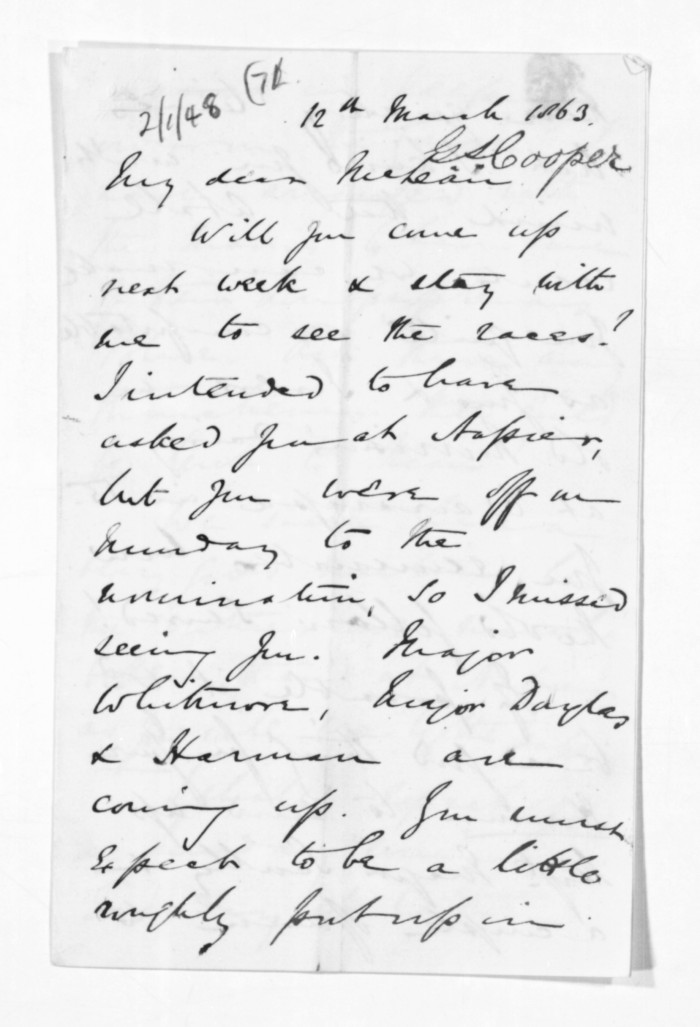 2/1/48
(71
12th March 1863.
G S Cooper
My dear McLean
Will you come up
next week & stay with
me to see the races?
I intended to have
asked you at Napier,
but you were off on
Monday to the
nomination, so I missed
seeing you. Major
Whitmore, Major Douglas
& Harman are
coming up. You must
expect to be a little
roughly put up in